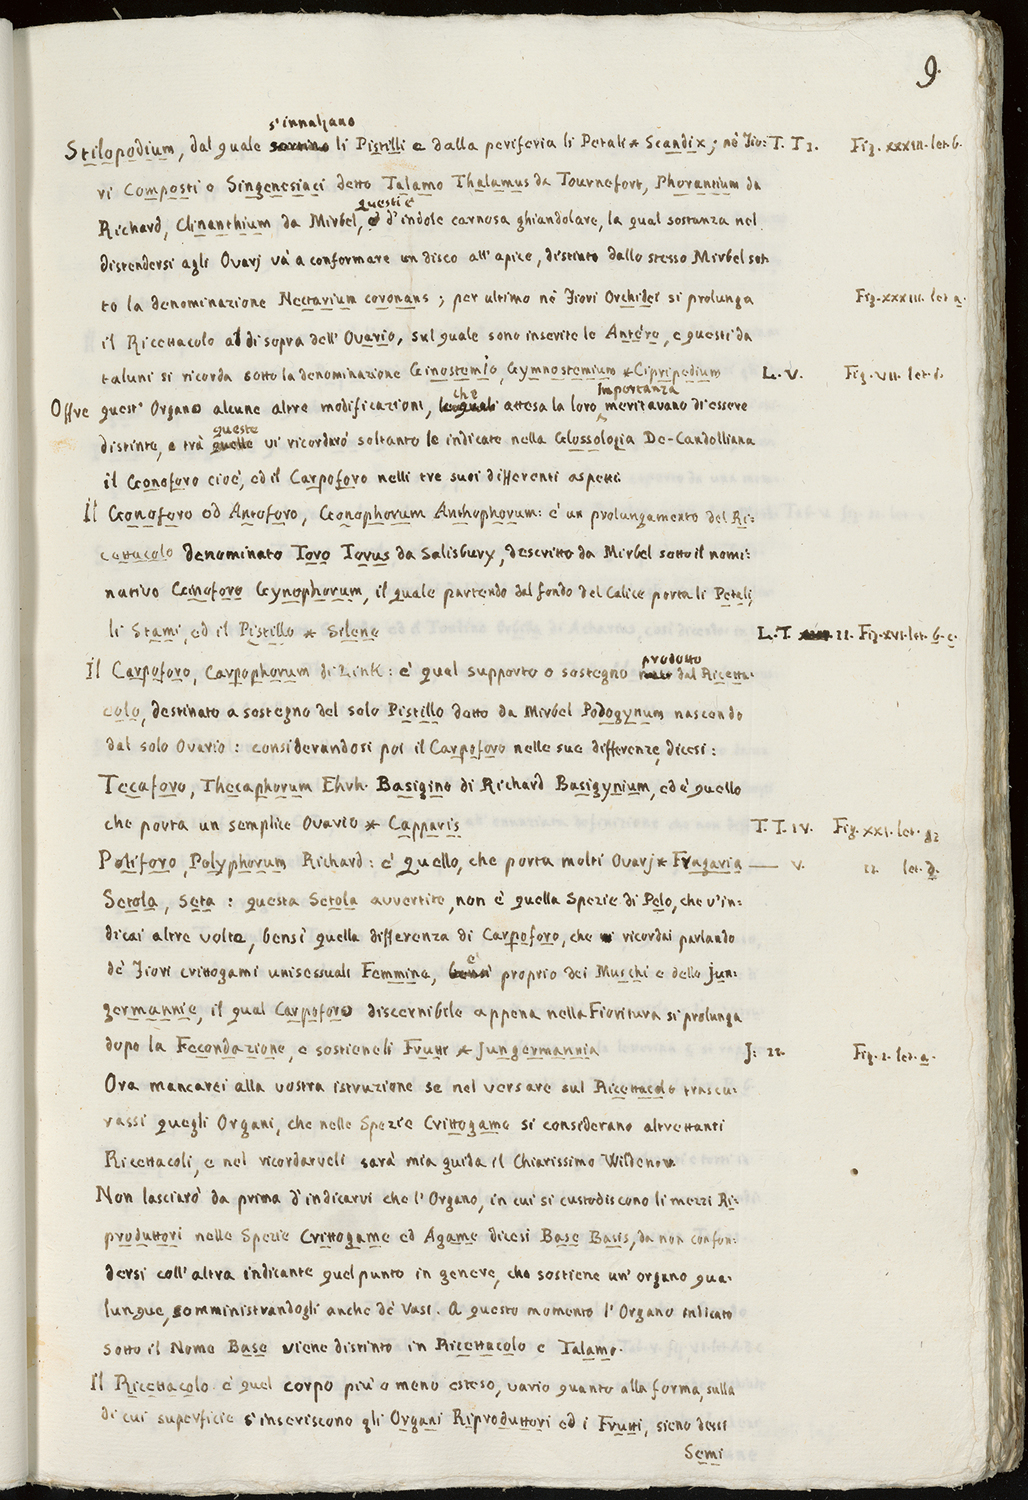 9.
s'innalzano
Stilopodium, dal quale li Pistilli e dalla periferia li Petali * Scandix; nè Fio: T. T 3. Fig. XXXIII. let. b.
vi Composti o Singenesiaci detto Talamo Thalamus da Tournefort, Phorantium da
questi è
Richard, Clinanthium da Mirbel, d'indole carnosa ghiandolare, la qual sostanza nel
distendersi agli Ovarj và a conformare un disco all'apice, distinto dallo stesso Mirbel sot
to la denominazione Nectarium coronans; per ultimo nè Fiori Orchidei si prolunga Fig. XXXIII. let a.
il Ricettacolo al di sopra dell'Ovario, sul quale sono inserite le Antère, e questi da
taluni si ricorda sotto la denominazione Ginostemio, Gymnostemium * Cipripedium L. V. Fig. VII. let. d.
che importanza
Offre quest'Organo alcune altre modificazioni, le quali attesa la loro meritavano di essere
queste
distinte, e trà quelle vi ricordarò soltanto le indicate nella Glossologia De-Candolliana
il Gonoforo cioè, ed il Carpoforo nelli tre suoi differenti aspetti.
Il Gonoforo od Antoforo, Gonophorum Anthophorum: è un prolungamento del Ri:
cettacolo denominato Toro Torus da Salisbury, descritto da Mirbel sotto il nomi:
nativo Ginoforo Gynophorum, il quale partendo dal fondo del Calice porta li Petali,
li Stami, ed il Pistillo * Silene L. T. 22. Fig. XVI. let. b. c.
prodotto
Il Carpoforo, Carpophorum di Link: è qual supporto o sostegno nato dal Ricetta:
colo, destinato a sostegno del solo Pistillo detto da Mirbel Podogynum nascendo
dal solo Ovario: considerandosi poi il Carpoforo nelle sue differenze, dicesi:
Tecaforo, Thecaphorum Ehrh. Basigino di Richard Basigynium, ed è quello
che porta un semplice Ovario * Capparis T. T. IV. Fig. XXI. let. g2
Poliforo, Polyphorum Richard: è quello, che porta molti Ovarj * Fragaria — V. 22. let. d.
Setola, Seta: questa Setola avvertite, non è quella Spezie di Pelo, che v'in:
dicai altre volte, bensì quella differenza di Carpoforo, che vi ricordai parlando
è
dè Fiori crittogami unisessuali Femmine, bensì proprio dei Muschi e delle Jun:
germannie, il qual Carpoforo discernibile appena nella Fioritura si prolunga
dopo la Fecondazione, e sostiene li Frutti * Jungermannia J: 22. Fig. 2. let. a.
Ora mancarei alla vostra istruzione se nel versare sul Ricettacolo trascu:
rassi quegli Organi, che nelle Spezie Crittogame si considerano altrettanti
Ricettacoli, e nel ricordarveli sarà mia guida il Chiarissimo Wildenow
Non lasciarò da prima d'indicarvi che l'Organo, in cui si custodiscono li mezzi Ri:
produttori nelle Spezie Crittogame ed Agame dicesi Base Basis, da non confon:
dersi coll'altra indicante quel punto in genere, che sostiene un'organo qua:
lunque, somministrandogli anche dè Vasi. A questo momento l'Organo indicato
sotto il Nome Base viene distinto in Ricettacolo e Talamo.
Il Ricettacolo è quel corpo più o meno esteso, vario quanto alla forma, sulla
di cui superficie s'inseriscono gli Organi Riproduttori ed i Frutti, sieno dessi
Semi